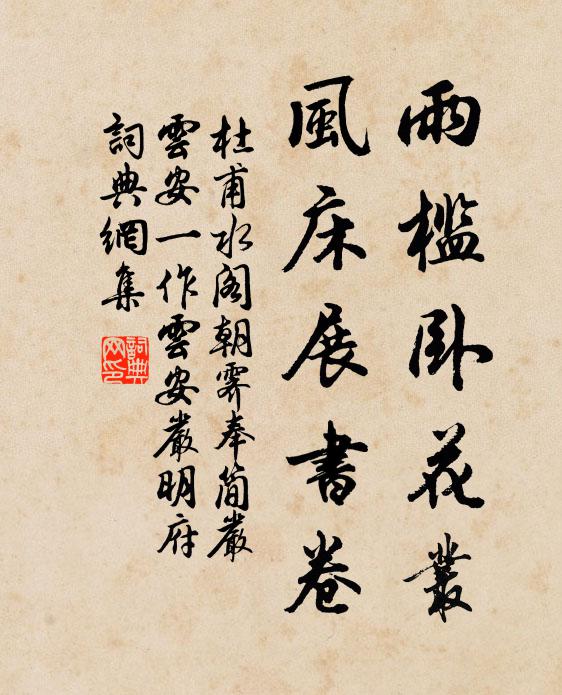 雨檻臥花叢
風床展書卷
杜甫水阁朝霽奉简嚴
雲安一作雲安嚴明府
詞典網集
詞典
网印